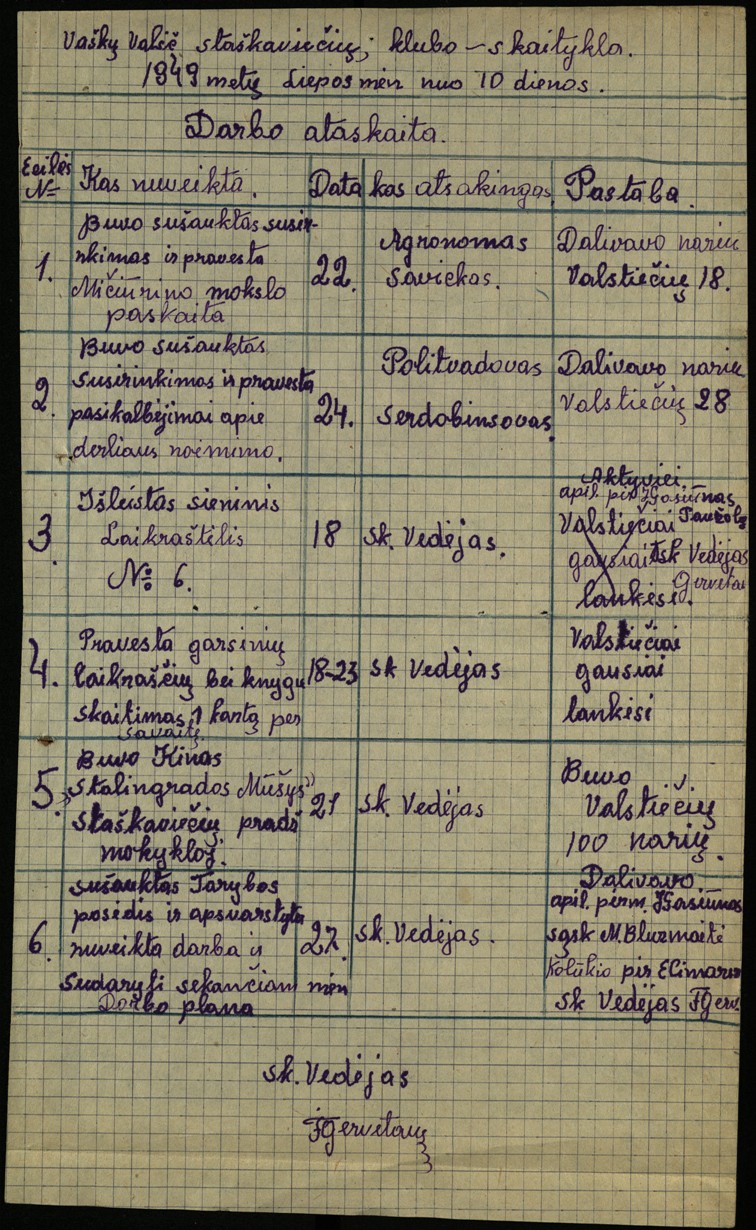 Vaškų Valšč staškaviečių; klubo – skaitykla.
1949 metų Liepos mėn nuo 10 dienos.
Darbo ataskaita.
Eilės № Kas nuveikta. Data kas atsakingas Pastaba.
1. Buvo sušauktas susir-
nkimas ir pravesta
Mičiūrino mokslo
paskaita
22.
Agronomas
Savickas.
Dalivavo nariu
Valstiečių 18.
2. Buvo sušauktas
susirinkimas ir pravesta
pasikalbėjimai apie
derliaus noėmimo.
24.
Politvadovas
Serdobinsovas.
Dalivavo nariu
Valstiečių 28
3. Išleistas sieninis
Laikraštėlis
№ 6.
18
sk. Vedėjas.
Aktyviei
apil. pir JGasiūnas
Valstiečiai
gausiai sk Vedėjas
lankėsi.
4. Pravesta garsinių
laikraščių bei knygu
skaitimas 1 kartą per
savaitę.
18-23
sk Vedėjas
Valstiečiai
gausiai
lankėsi
5. Buvo Kinas
„Stalingrados Mūšys"
Staškaviečių prads
mokykloj.
21
sk. Vedėjas
Buvo
Valstiečių
100 narių.
6. sušauktas Tarybos
posėdis ir apsvarstyta
nuveikta darba ir
Sudaryti sekančiam mėn
Darbo plana
27.
sk. Vedėjas.
Dalivavo
apil. perm. JGasiūnas
sąsk M. Bluzmaitė
Kolūkio pir
sk Vedėjas
sk. Vedėjas
FGervetauų